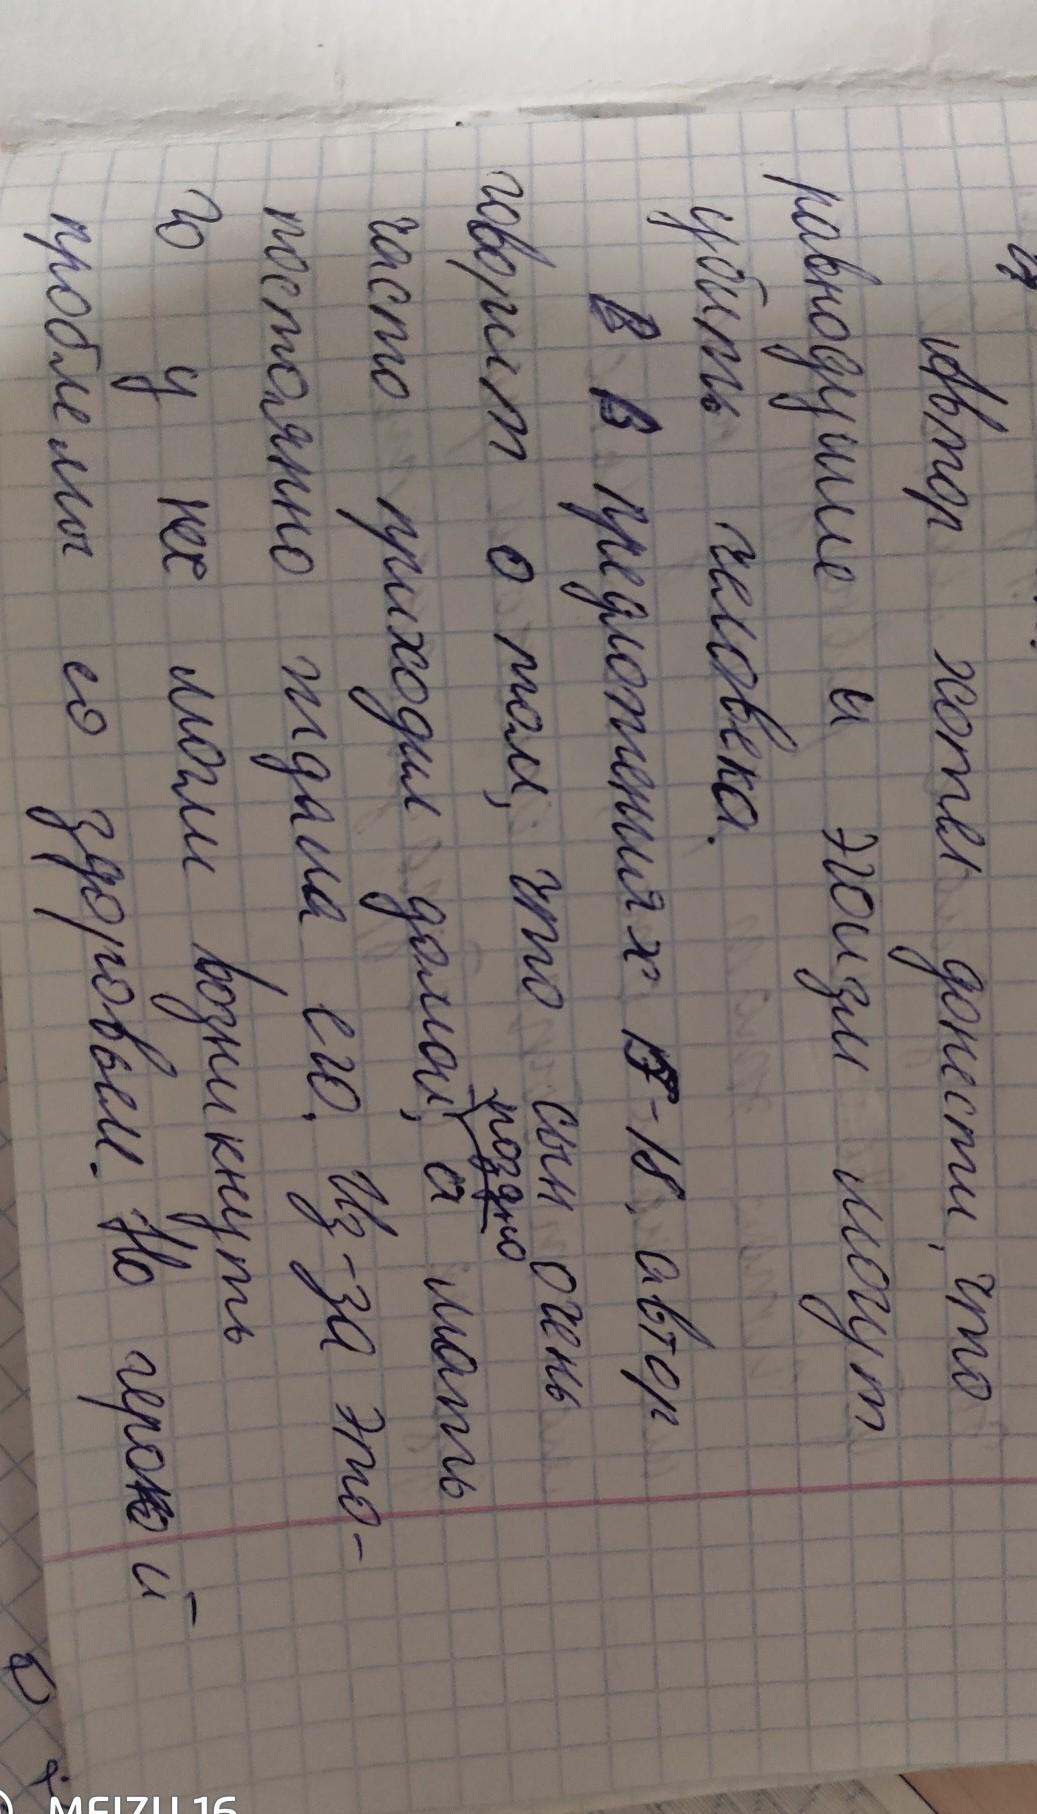 Автор хотел донести, что
равнодушие и эгоизм могут
убить человека.
В В предложениях 17-18, автор
говорит о том, что сын очень
поздно
часто приходил домой, а мать
постоянно ждала его. Из-за это-
го у нее могли возникнуть
проблемы со здоровьем. Но герой
MEIZU 16